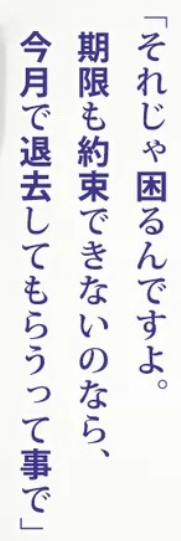 「それじゃ困るんですよ。
期限も約束できないのなら、
今月で退去してもらうって事で」